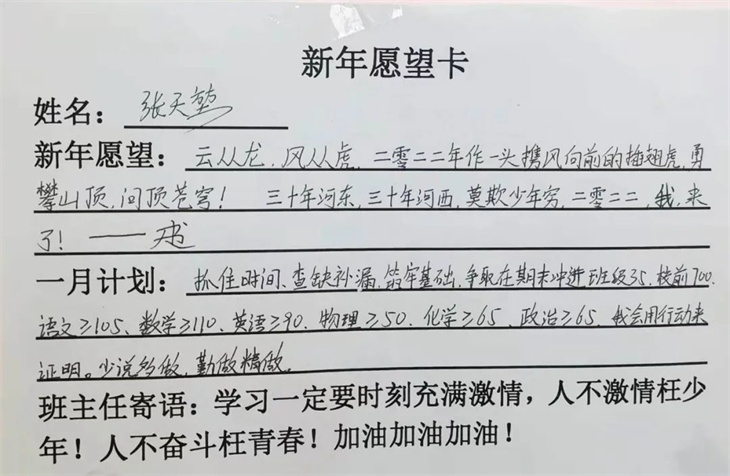 新年愿望卡
姓名：张天堃
新年愿望：云从龙，风从虎，二零二二年作一头携风向前的插翅虎，勇
攀山顶，问顶苍穹！ 三十年河东，三十年河西，莫欺少年穷，二零二二，我，来
了！——
一月计划：抓住时间、查缺补漏，筑牢基础，争取在期末冲进班级35，校前700.
语文≥105、数学≥110、英语≥90、物理≥50、化学≥65、政治≥65，我会用行动来
证明。少说多做，勤做精做。
班主任寄语：学习一定要时刻充满激情，人不激情枉少
年！人不奋斗枉青春！加油加油加油！